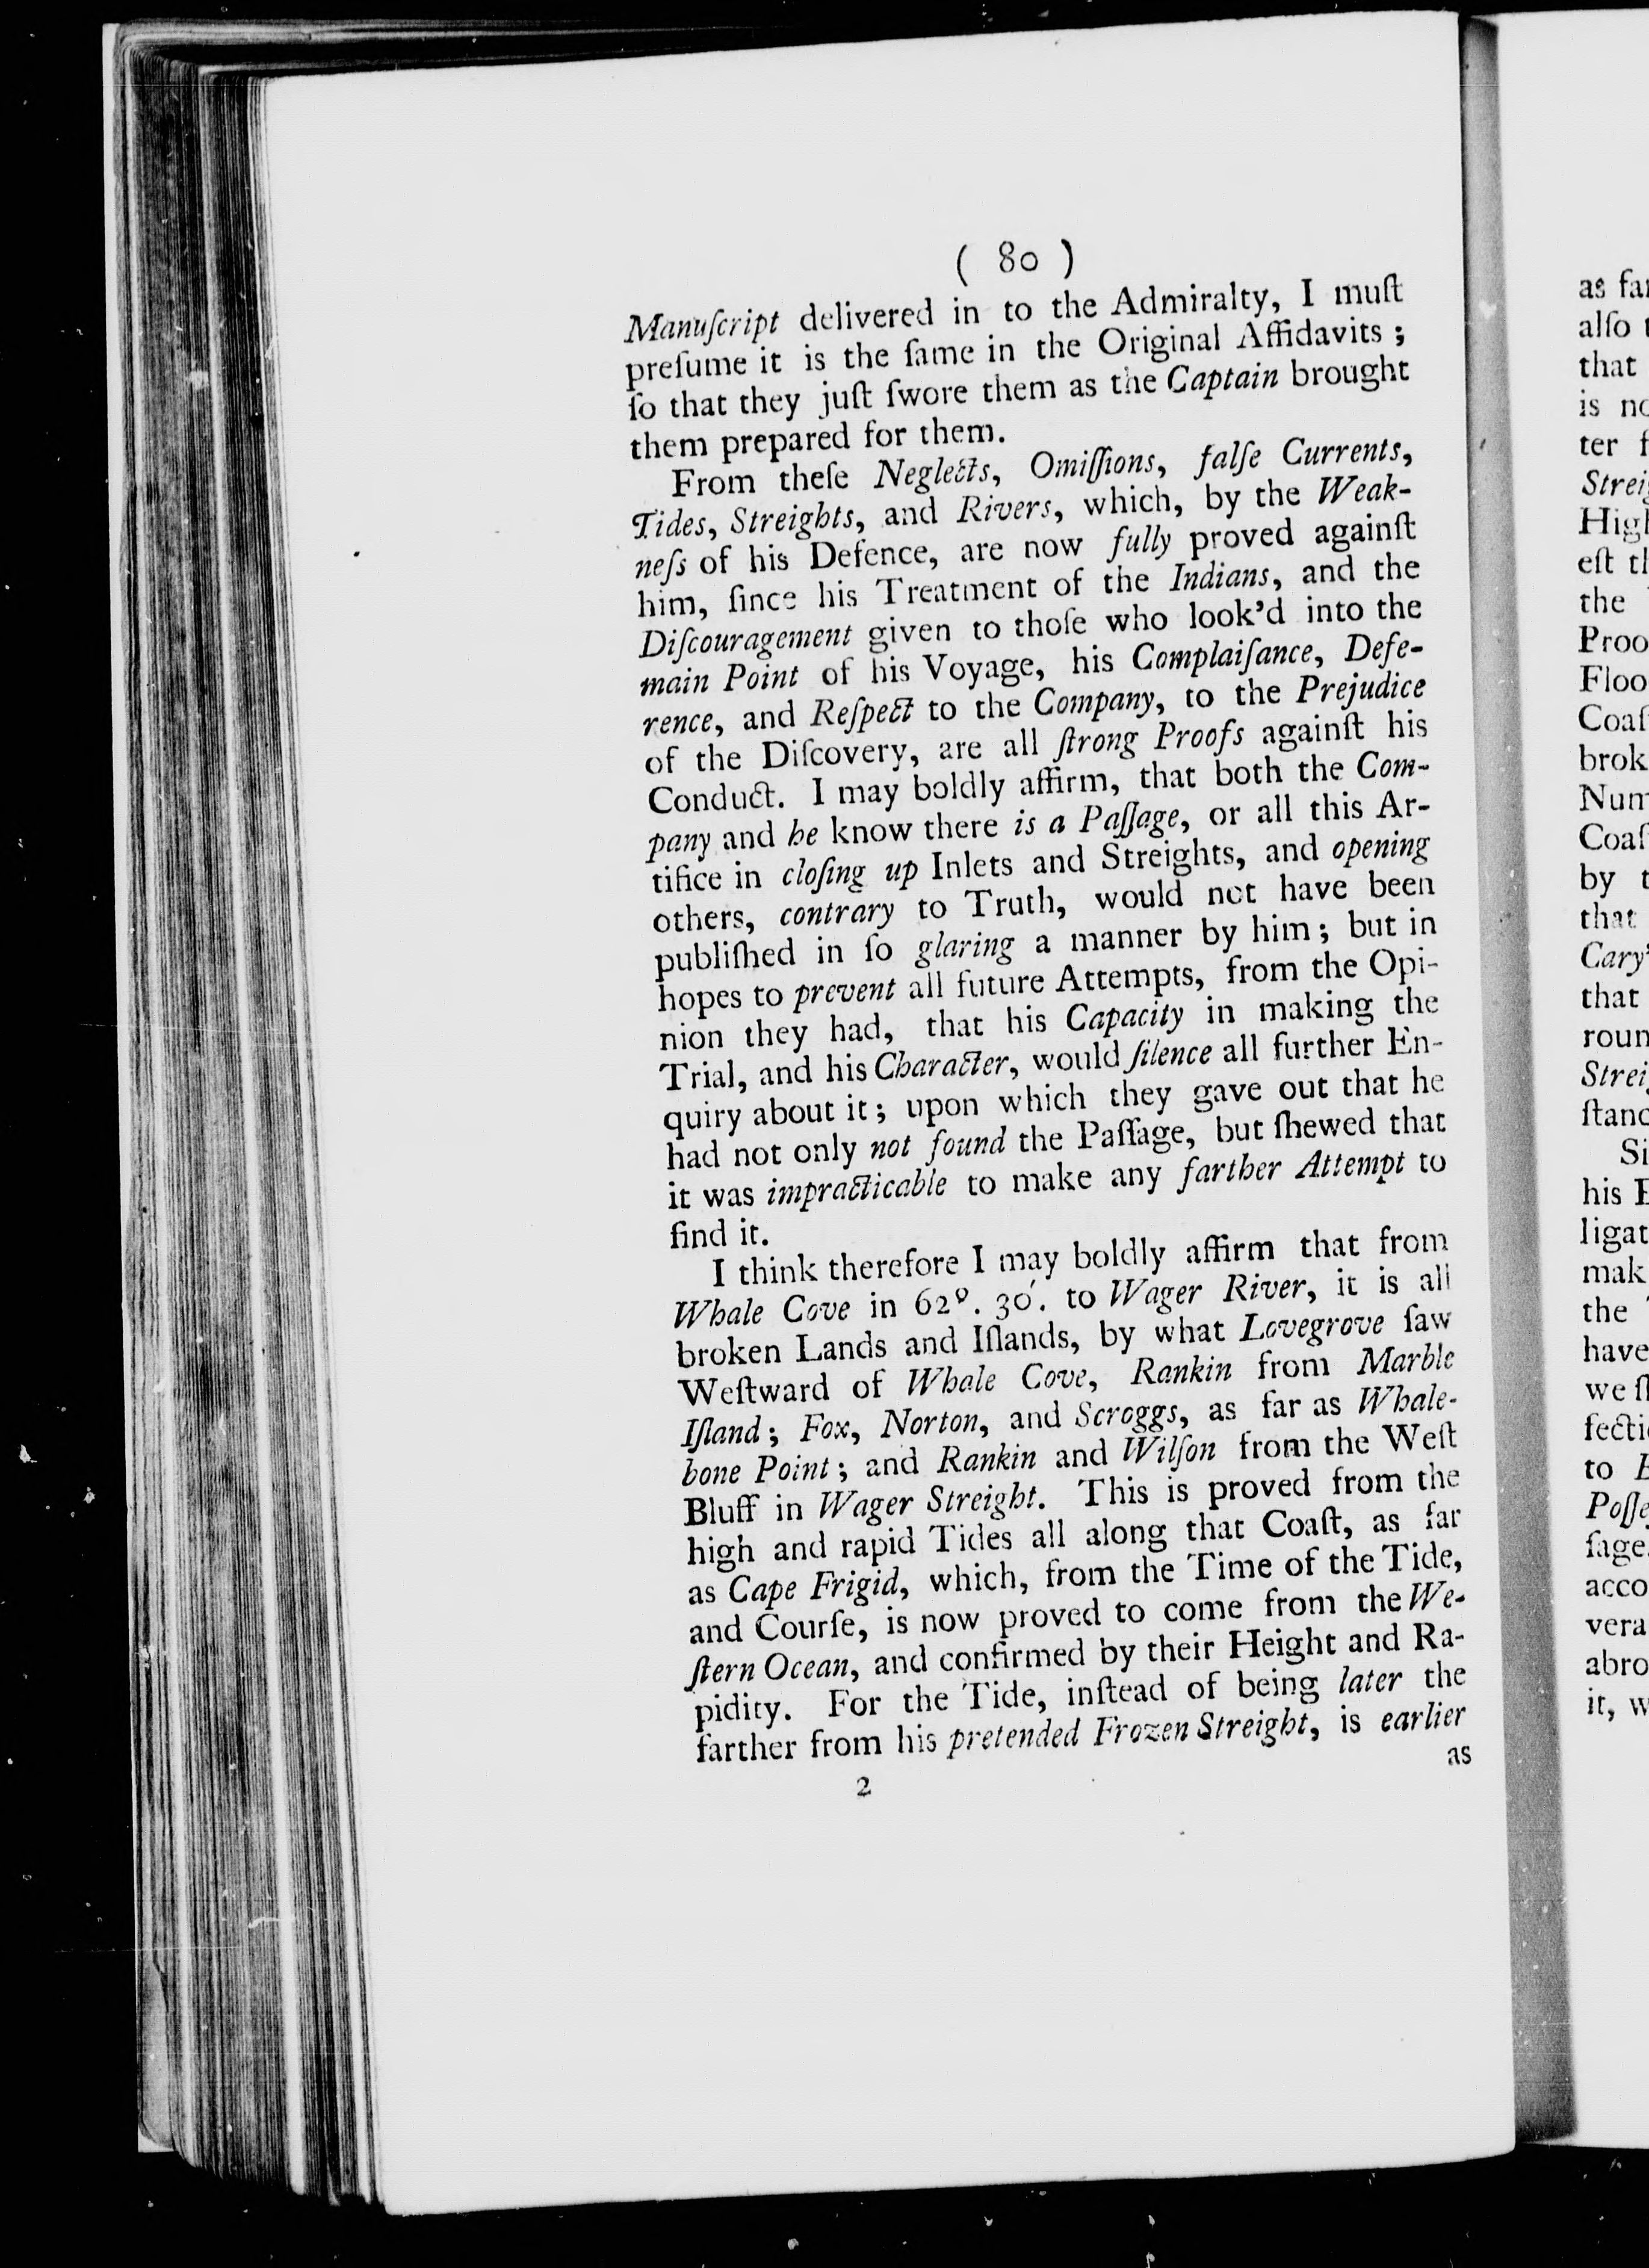 ( 80 )
Manuſcript delivered in to the Admiralty, I muſt
preſume it is the ſame in the Original Affidavits ;
ſo that they juſt ſwore them as the Captain brought
them prepared for them.
From theſe Neglects, Omiſſions, falſe Currents,
Tides, Streights, and Rivers, which, by the Weak-
neſs of his Defence, are now fully proved againſt
him, ſince his Treatment of the Indians, and the
Diſcouragement given to thoſe who look'd into the
main Point of his Voyage, his Complaiſance, Defe-
rence, and Reſpect to the Company, to the Prejudice
of the Diſcovery, are all ſtrong Proofs againſt his
Conduct. I may boldly affirm, that both the Com-
pany and he know there is a Paſſage, or all this Ar-
tifice in cloſing up Inlets and Streights, and opening
others, contrary to Truth, would not have been
publiſhed in ſo glaring a manner by him; but in
hopes to prevent all future Attempts, from the Opi-
nion they had, that his Capacity in making the
Trial, and his Character, would ſilence all further En-
quiry about it; upon which they gave out that he
had not only not found the Paſſage, but ſhewed that
it was impracticable to make any farther Attempt to
find it.
I think therefore I may boldly affirm that from
Whale Cove in 62°. 30'. to Wager River, it is all
broken Lands and Iſlands, by what Lovegrove ſaw
Weſtward of Whale Cove, Rankin from Marble
Iſland; Fox, Norton, and Scroggs, as far as Whale-
bone Point; and Rankin and Wilſon from the Weſt
Bluff in Wager Streight. This is proved from the
high and rapid Tides all along that Coaſt, as far
as Cape Frigid, which, from the Time of the Tide,
and Courſe, is now proved to come from the We-
ſtern Ocean, and confirmed by their Height and Ra-
pidity. For the Tide, inſtead of being later the
farther from his pretended Frozen Streight, is earlier
as
2
as
alſo
that
is
ter
eſt
the
by
that
that
his
the
have
we
to
it,